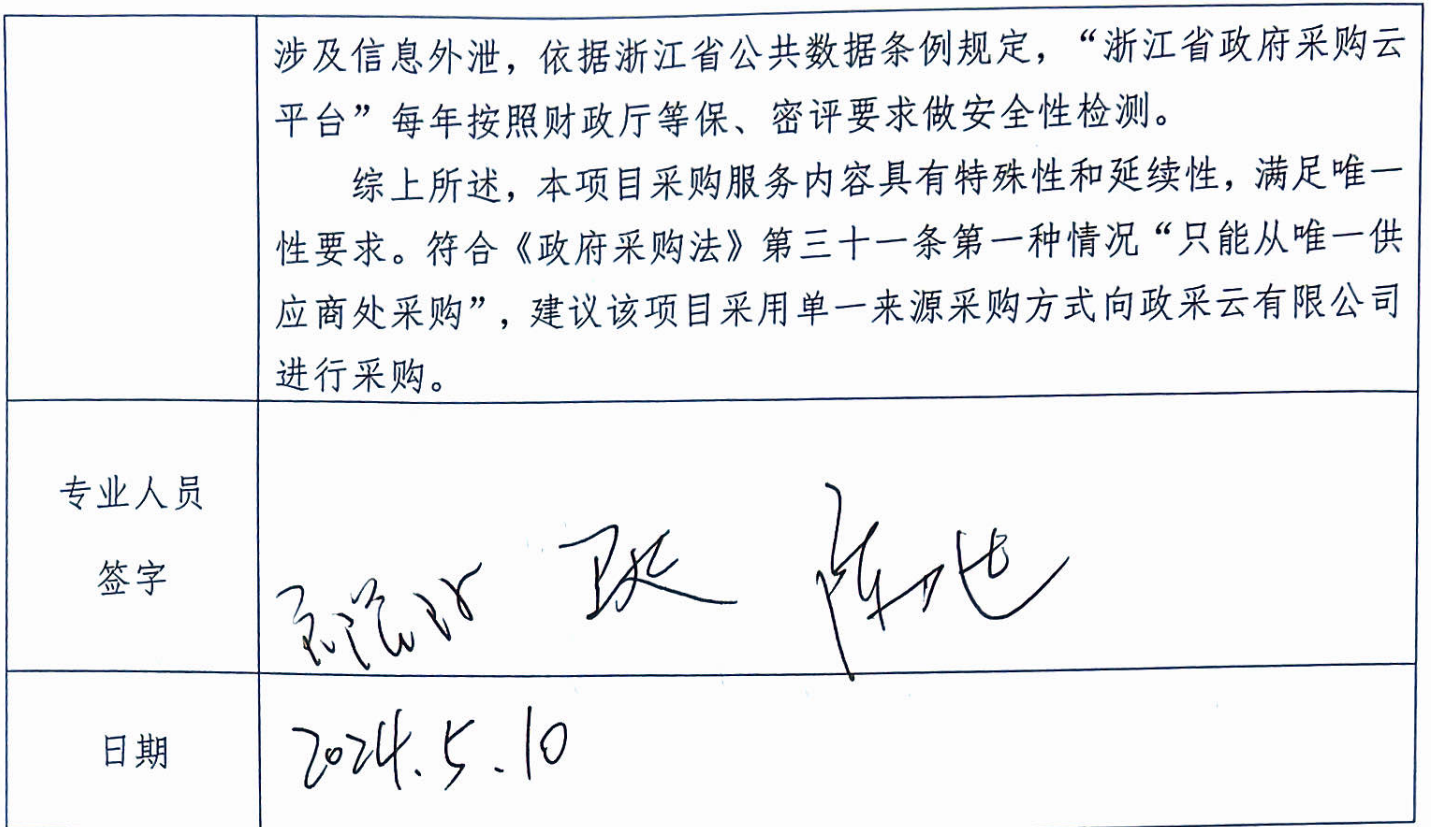 涉及信息外泄，依据浙江省公共数据条例规定，“浙江省政府采购云
平台”每年按照财政厅等保、密评要求做安全性检测。
综上所述，本项目采购服务内容具有特殊性和延续性，满足唯一
性要求。符合《政府采购法》第三十一条第一种情况“只能从唯一供
应商处采购”，建议该项目采用单一来源采购方式向政采云有限公司
进行采购。
专业人员
签字
日期
2024.5.10